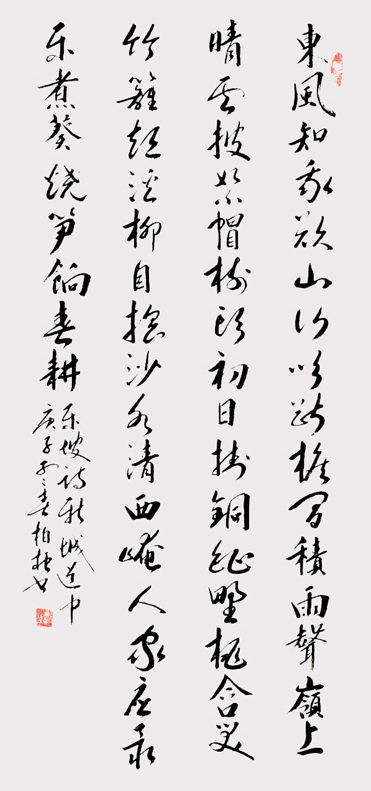 東風知我欲山行吹斷檐間積雨聲嶺上
晴雲披絮帽樹頭初日掛銅鉦野桃含笑
竹籬短溪柳自搖沙水清西崦人家應最
樂煮葵燒筍餉春耕
東坡詩新城道中
庚子春柏書